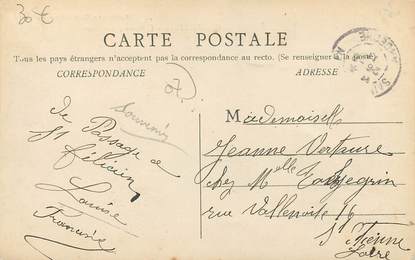 30 €
CARTE POSTALE
Tous les pays étrangers n'acceptent pas la correspondance au recto. (Se renseigner à la poste)
CORRESPONDANCE
ADRESSE
07
Souvenir
de Passage de
St Félicien
Louise
Francine
Mademoiselle
Jeanne
chez Melle
rue Vallenoite 16
St Etienne
Loire